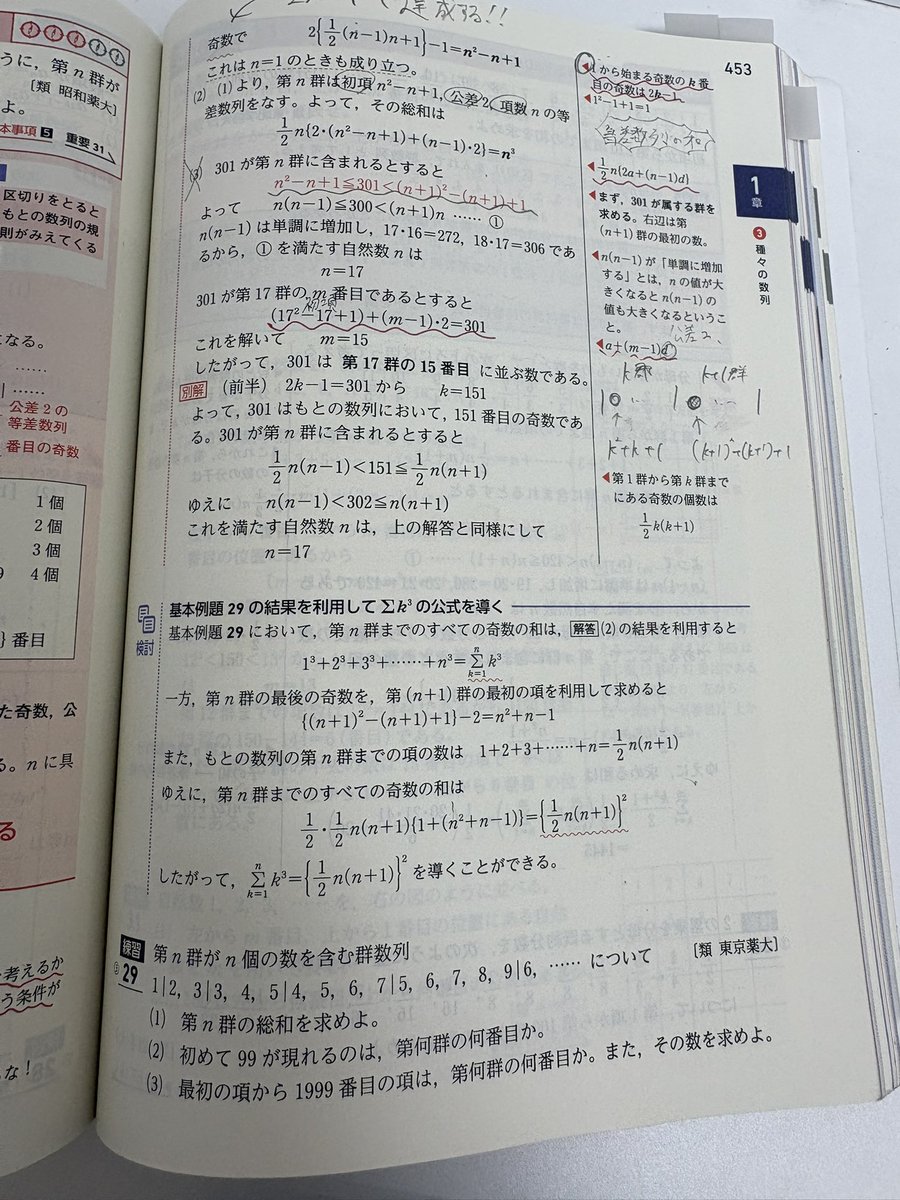 うに，第n群が
〔類 昭和薬大〕
よ。
本事項 5 重要 31
区切りをとると
もとの数列の規
則がみえてくる
になる。
公差2の
等差数列
番目の奇数
1個
2個
3個
9 4個
} 番目
た奇数，公
る。nに具
る
考えるか
う条件が
な！
達成する!!
453
奇数で 2{1/2(n-1)n+1}-1=n²-n+1
これは n=1 のときも成り立つ。
(2) (1)より，第n群は初項 n²-n+1，公差2，項数nの等
差数列をなす。よって，その総和は
1/2n{2・(n²-n+1)+(n-1)・2}=n³
(3) 301が第n群に含まれるとすると
n²-n+1≦301<(n+1)²-(n+1)+1
よって n(n-1)≦300<(n+1)n …… ①
n(n-1)は単調に増加し，17・16=272，18・17=306であ
るから，①を満たす自然数nは
n=17
301が第17群のm番目であるとすると
初項
(17²-17+1)+(m-1)・2=301
これを解いて m=15
したがって，301は 第17群の15番目 に並ぶ数である。
別解 (前半) 2k-1=301 から k=151
よって，301はもとの数列において，151番目の奇数であ
る。301が第n群に含まれるとすると
1/2n(n-1)<151≦1/2n(n+1)
ゆえに n(n-1)<302≦n(n+1)
これを満たす自然数nは，上の解答と同様にして
n=17
◀1から始まる奇数のk番
目の奇数は2k-1
◀1²-1+1=1
等差数列の和
◀1/2n{2a+(n-1)d}
◀まず，301が属する群を
求める。右辺は第
(n+1)群の最初の数。
◀n(n-1)が「単調に増加
する」とは，nの値が大
きくなるとn(n-1)の
値も大きくなるというこ
と。
公差2、
◀a+(m-1)d
k群 k+1群
k²+k+1 (k+1)²+(k+1)+1
◀第1群から第k群まで
にある奇数の個数は
1/2k(k+1)
1章
3 種々の数列
検討
基本例題 29 の結果を利用して Σk³ の公式を導く
基本例題 29 において，第n群までのすべての奇数の和は，解答 (2)の結果を利用すると
1³+2³+3³+……+n³=Σ[k=1→n]k³
一方，第n群の最後の奇数を，第(n+1)群の最初の項を利用して求めると
{(n+1)²-(n+1)+1}-2=n²+n-1
また，もとの数列の第n群までの項の数は 1+2+3+……+n=1/2n(n+1)
ゆえに，第n群までのすべての奇数の和は
1/2・1/2n(n+1){1+(n²+n-1)}={1/2n(n+1)}²
したがって，Σ[k=1→n]k³={1/2n(n+1)}² を導くことができる。
練習 29 第n群がn個の数を含む群数列
1|2，3|3，4，5|4，5，6，7|5，6，7，8，9|6，…… について 〔類 東京薬大〕
(1) 第n群の総和を求めよ。
(2) 初めて99が現れるのは，第何群の何番目か。
(3) 最初の項から1999番目の項は，第何群の何番目か。また，その数を求めよ。